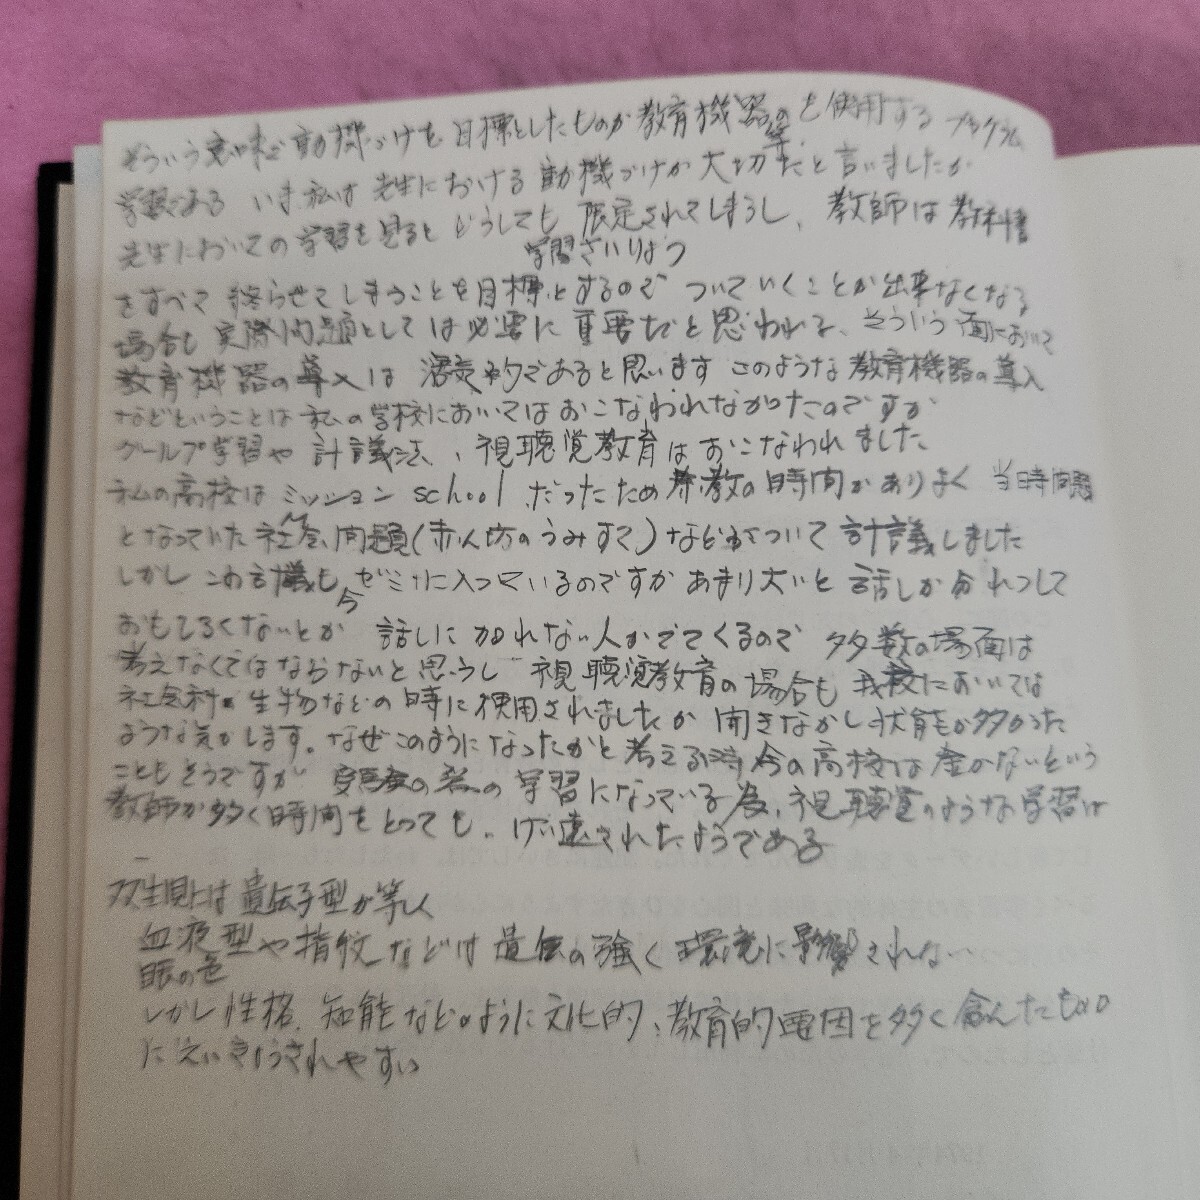 そういう意味で動機づけを目標としたものが教育機器の等を使用するプログラム
学習である いま私は先生における動機づけが大切だと言いましたが
先生においての学習を見るとどうしても限定されてしまうし、教師は教科書
学習ざいりょう
をすべて終らせてしまうことを目標とするので ついていくことが出来なくなる
場合も実際問題としては必要に重要だと思われる、そういう面において
教育機器の導入は 的であると思います このような教育機器の導入
などということは私の学校においてはおこなわれなかったのですが
グールプ学習や計議法、視聴覚教育はおこなわれました
私の高校はミッションschoolだったため 教の時間がありよく 当時問題
となっていた社会問題(赤ん坊のうみすて)などについて計議しました
しかしこの計議も今ゼミに入っているのですがあまり大いと話しが分れつして
おもしろくないとか 話しに加れない人がでてくるので 多数の場面は
考えなくてはならないと思うし 視聴覚教育の場合も我校においては
社会科 生物などの時に使用されましたが聞きながし状態もが多かった
ような気がします。なぜこのようになったかと考える時今の高校は金がないという
こともそうですが の学習になっている為、視聴覚のような学習は
教師が多く時間をとっても。けい遠されたようである
双生児は遺伝子型が等しく
血液型や指紋などは遺伝の強く環境に影響されない
眼の色
しかし性格、知能などのように文化的、教育的要因を多く含んだもの
にえいきょうされやすい